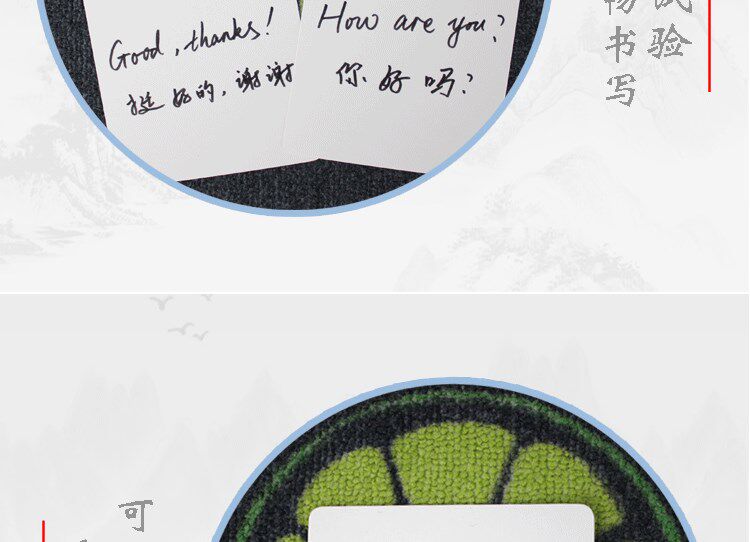 Good, thanks!
挺好的，谢谢
How are you?
你好吗？
试验
畅书写
可